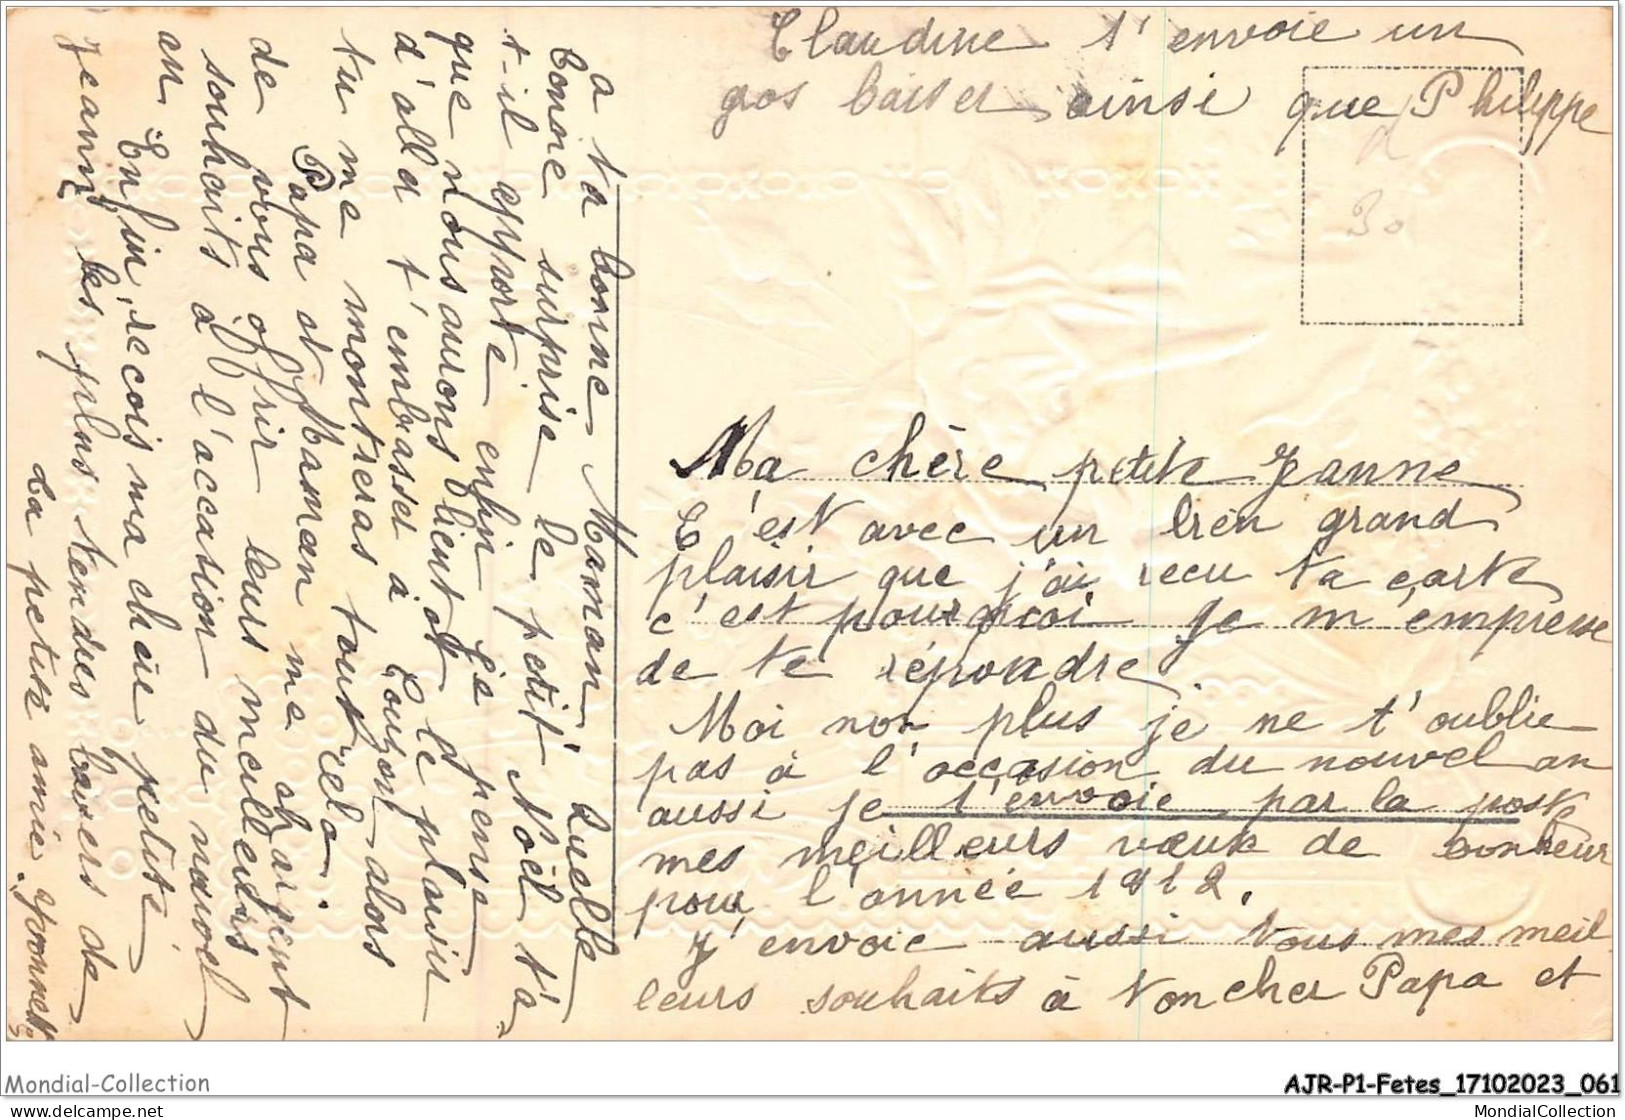 Claudine t'envoie un
gros baiser ainsi que Philippe
Ma chère petite Jeanne
C'est avec un bien grand
plaisir que j'ai recu ta carte
c'est pourquoi je m'empresse
de te répondre
Moi non plus je ne t'oublie
pas à l'occasion du nouvel an
aussi je t'envoie par la poste
mes meilleurs vœux de bonheur
pour l'année 1912.
J'envoie aussi tous mes meil
leurs souhaits à ton cher Papa et
a ta bonne Maman Quelle
bonne surprise le petit Noël t'a
t-il apporté enfin je pense
que nous aurons bientot le plaisir
d'alla t'embasser à Couzon alors
tu me montreras tout cela.
Papa et Maman me chargent
de vous offrir leurs meilleurs
souhaits à l'accasion du nouvel
an Enfin recois ma chère petite
Jeanne les plus tendres baisers de
ta petite amie Yvonnette
30
Mondial-Collection
AJR-P1-Fetes_17102023_061
www.delcampe.net
MondialCollection